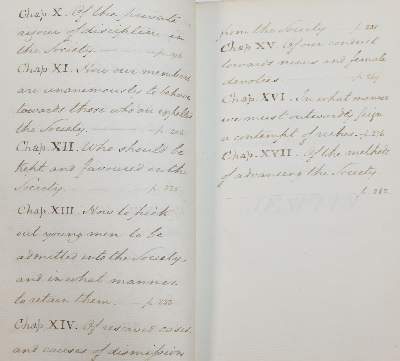 Chap. X. Of the private
rigour of discipline in
the Society — p.
Chap. XI. How our members
are unanimously to behave
towards those who are expelled
the Society. — p. 202
Chap. XII. Who should be
Kept and favoured in the
Society — p.
Chap. XIII. How to pick
out young men to be
admitted into the Society,
and in what manner
to retain them. — p.
Chap. XIV. Of reserved cases
and causes of dismission
from the Society — p.
Chap XV. Of our conduct
towards nuns and female
devotees — p.
Chap. XVI. In what manner
we must outwardly feign
a contempt of riches. p.
Chap. XVII. Of the methods
of advancing the Society
— p. 282